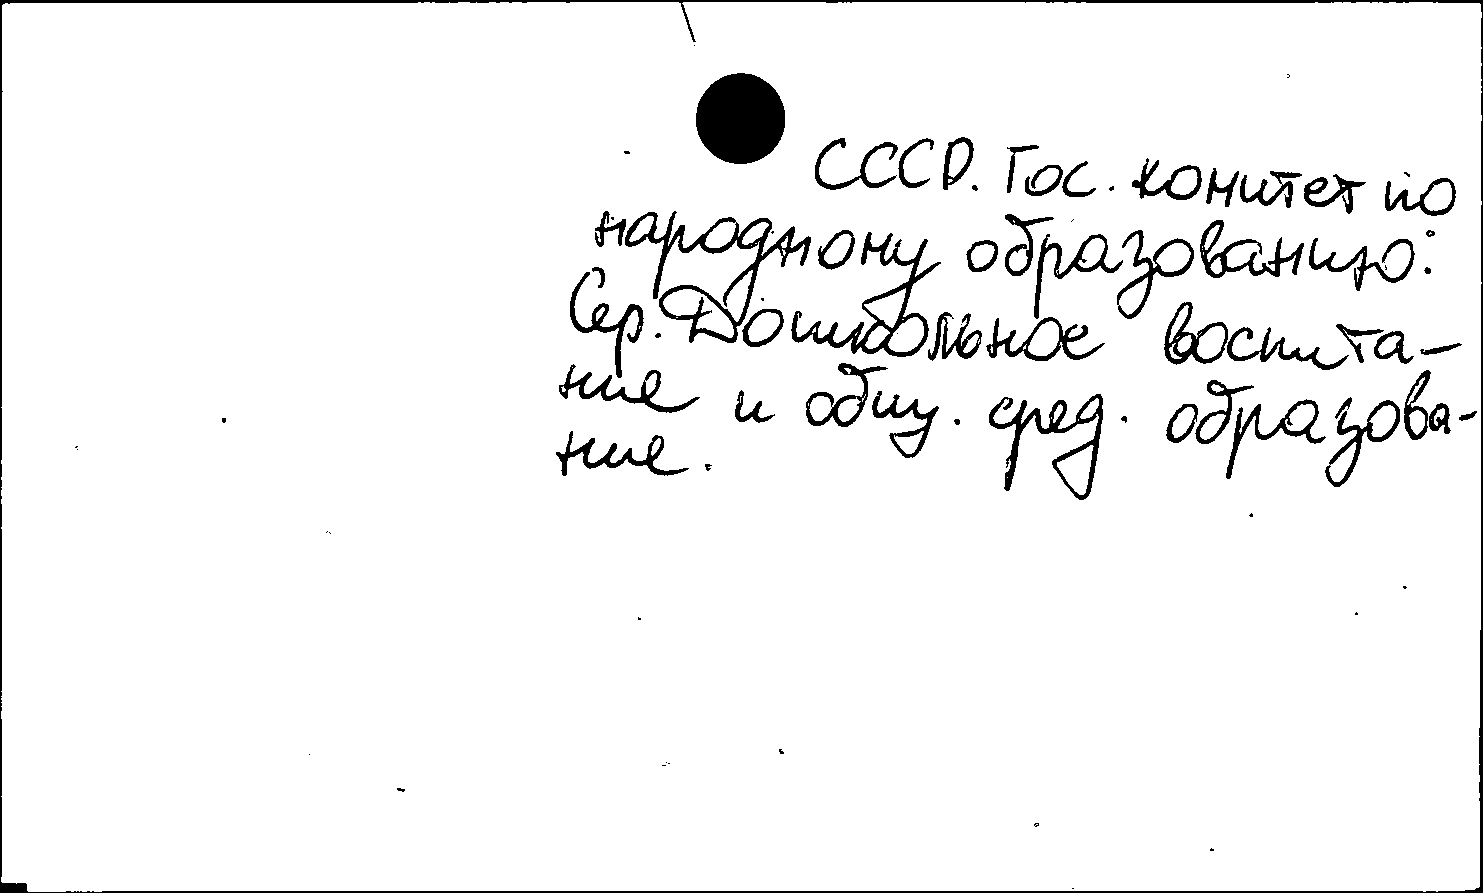 СССР. Гос. комитет по
народному образованию:
Сер. Дошкольное воспита-
ние и общ. сред. образова-
ние.